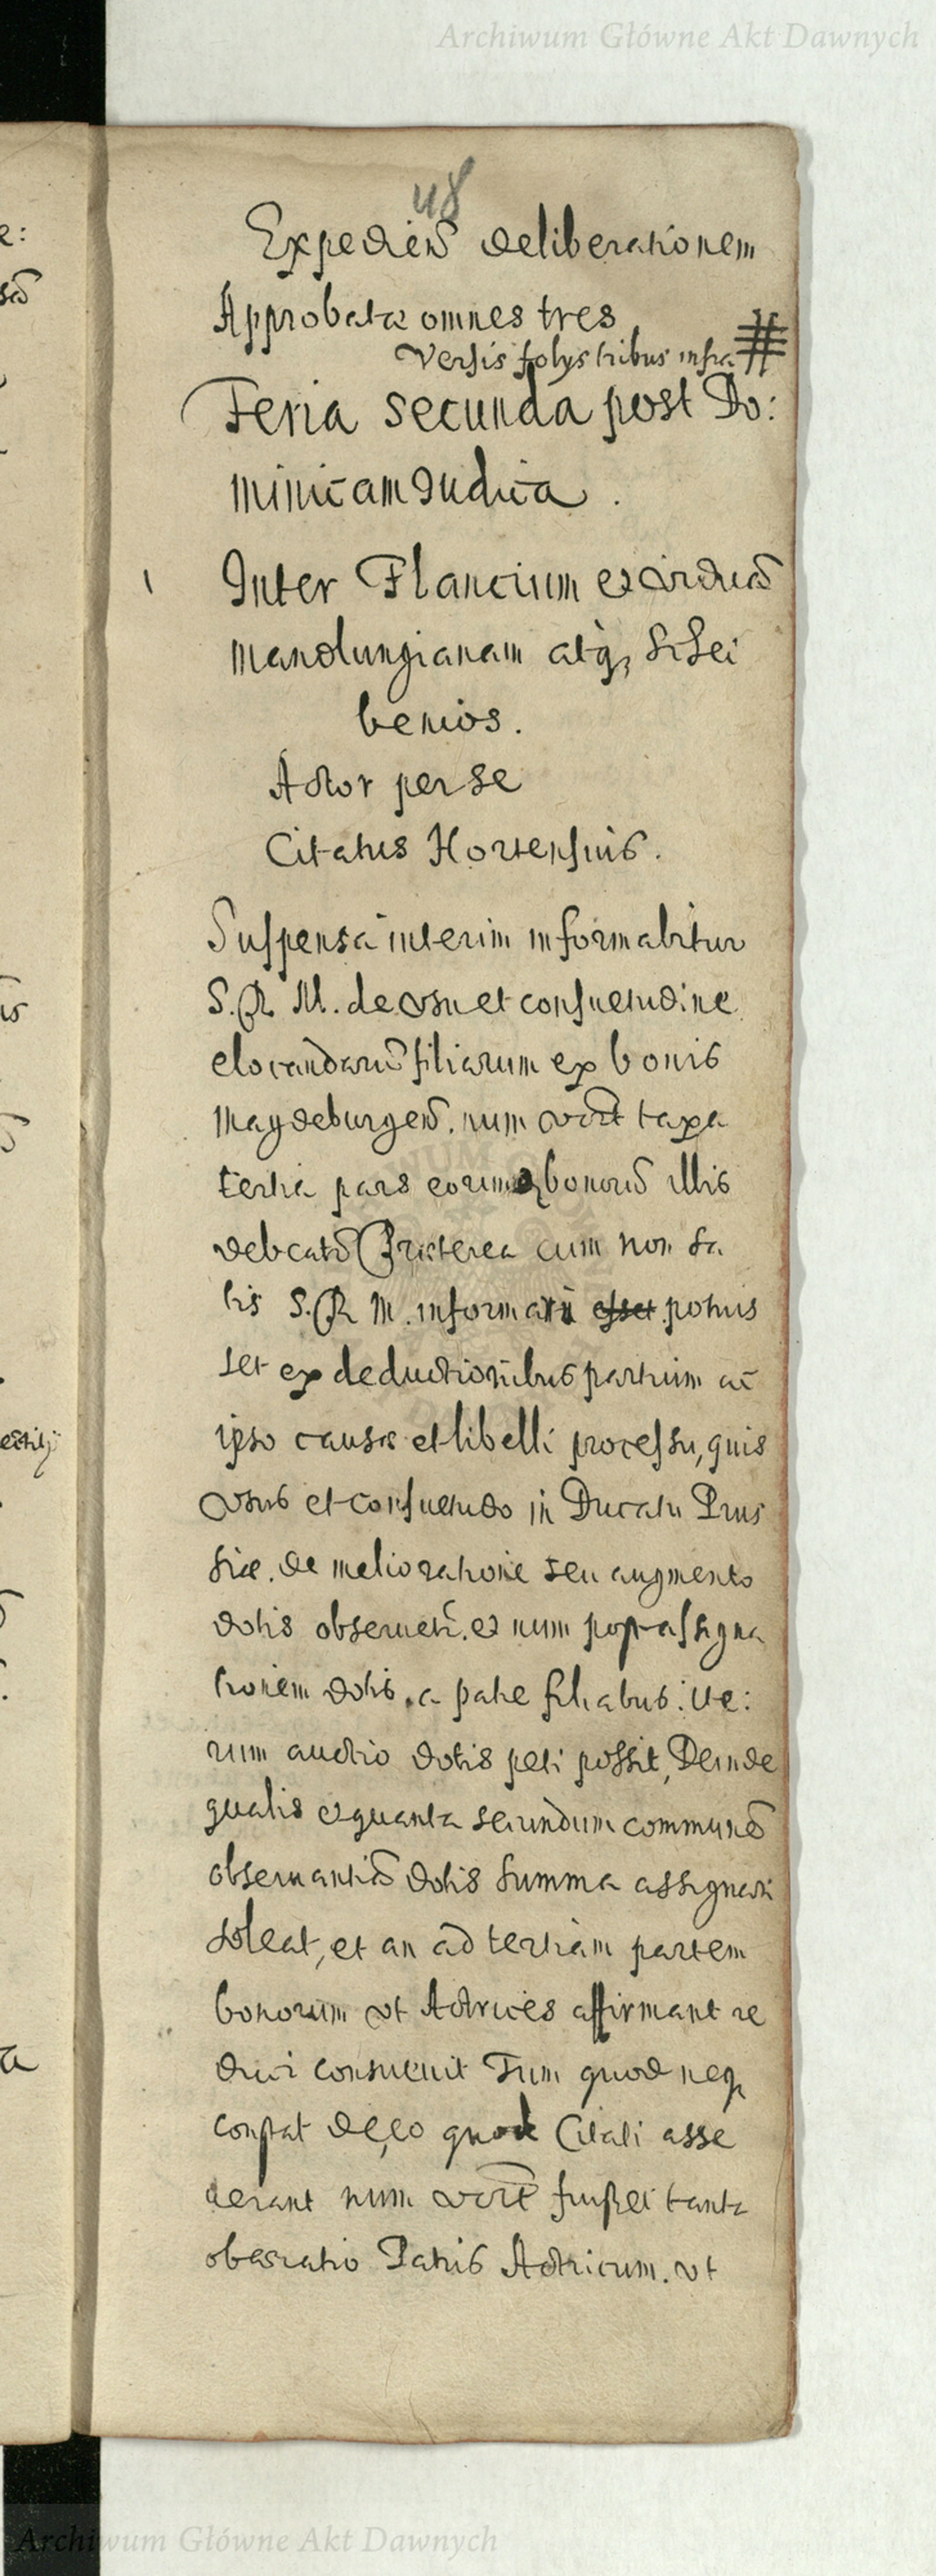 Archiwum Główne Akt Dawnych
48
Expedien̄ deliberationem
Approbatæ omnes tres
Versis folys tribus infra #
Feria secunda post Do:
minicam Judica.
1 Inter Flancium ex
mandungianam atq,
benios.
Actor per se
Citatus Hortensius.
Suspensa interim informabitur
S. R M. de vsu et consuetudine
elocandarū filiarum ex bonis
Magdeburgen̄. num taxa
tertia pars bonorū illis
debeat Præterea cum non sa
tis S. R M. informari esset potuis
set ex deductionibus partium ac
ipso causæ et libelli processu, quis
Vsus et consuetudo in Ducatu Prus
siæ. de melioratione seu augmento
dotis obseruet. et num post assigna
tionem dotis a patre filiabus: ite:
rum auctio dotis peti possit, Deinde
qualis et quanta secundum communē
obseruantiā dotis summa assignari
soleat, et an ad tertiam partem
bonorum vt Actrices affirmant re
duci consueuit Tum quod neq
constat de, eo quod Citati asse
uerant num fuisset tanta
obæratio Patris Actricum. vt
Archiwum Główne Akt Dawnych